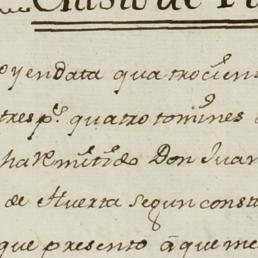 Gasto de
oyendata quatrocien
tres p.s quatro tomines
ha Remitido Don Juan
de Huerta segun const
que presento á que me